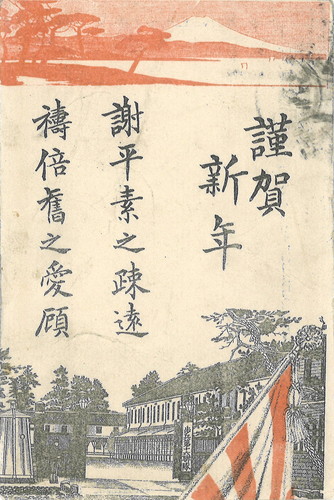 謹賀
新年
謝平素之疎遠
禱倍舊之愛顧